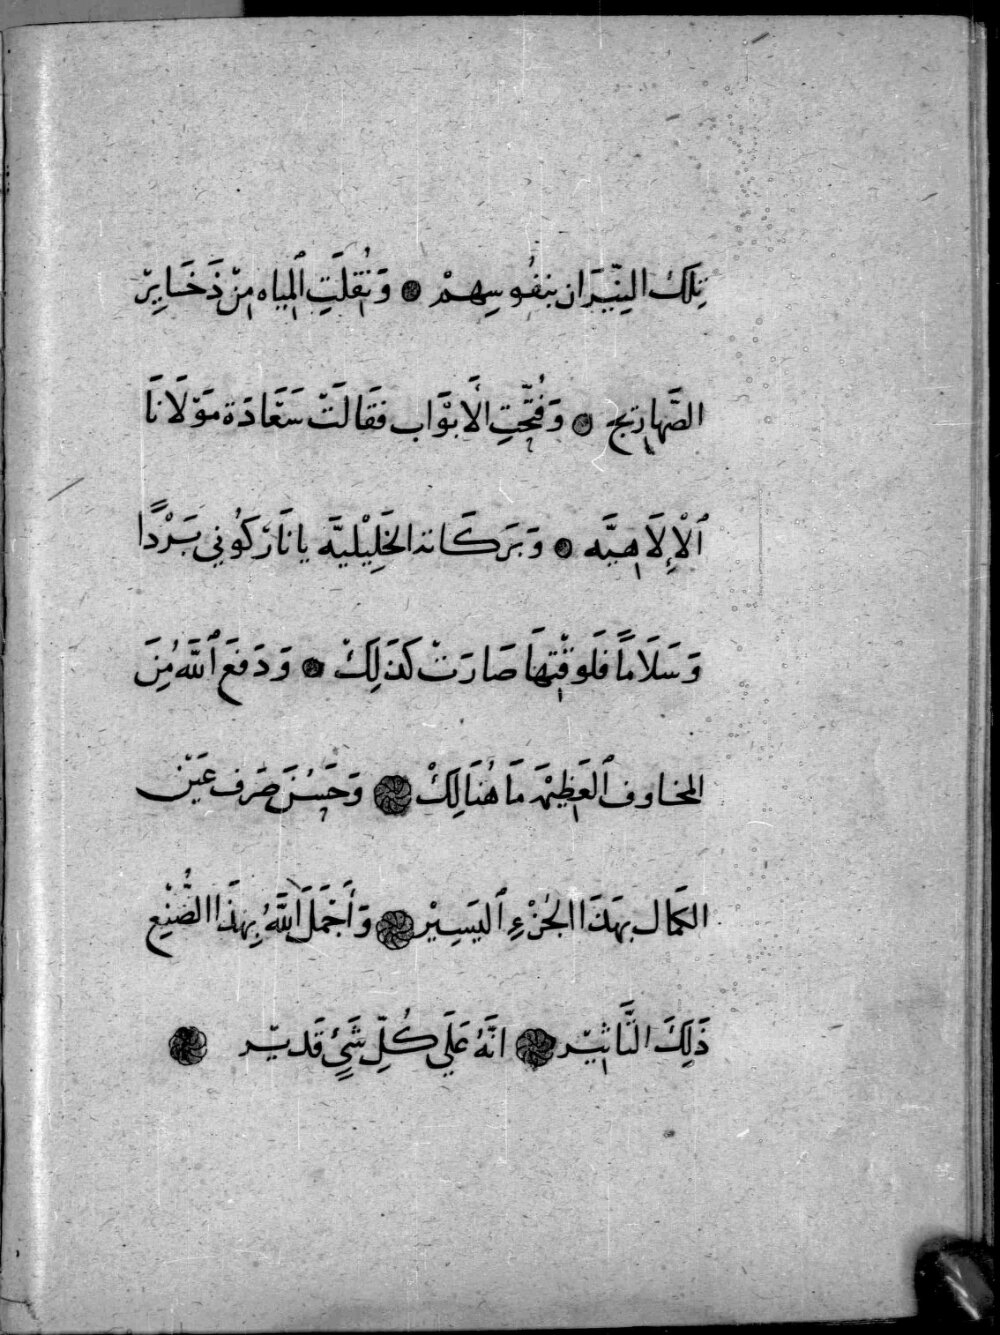 تِلكَ النِّيْرَان بنفُوسِهِمْ ۞ وَنُقِلَتِ ٱلمِيَاه مِنْ ذَخَايِرْ
الصَّهاريج ۞ وَفُتِّحَتِ الْأَبْوَاب فَقَالَتْ سَعَادَة مَوْلَانَا
ٱلْإِلَاهِيَّه ۞ وَبَرَكَاته الخَلِيْلِيَّه يا نَارُ كُونِي بَرْدًا
وَسَلَامًا فَلوقْتِهَا صَارَتْ كَذَلِكْ ۞ وَدَفَعَ ٱللَّه مِنَ
المخاوف ٱلعَظِيْمَه مَا هُنَالِكْ ۞ وَحَسُنَ صَرف عَيْن
الكَمَال بِهَذَا الجُزْءِ ٱليَسِيْر ۞ وَأَجْمَلَ ٱللَّهُ بِهذَا الصُّنْعِ
ذَلِكَ التَّاثِيْر ۞ انَّهُ عَلَي كُلِّ شَيْءٍ قَدِيْر ۞